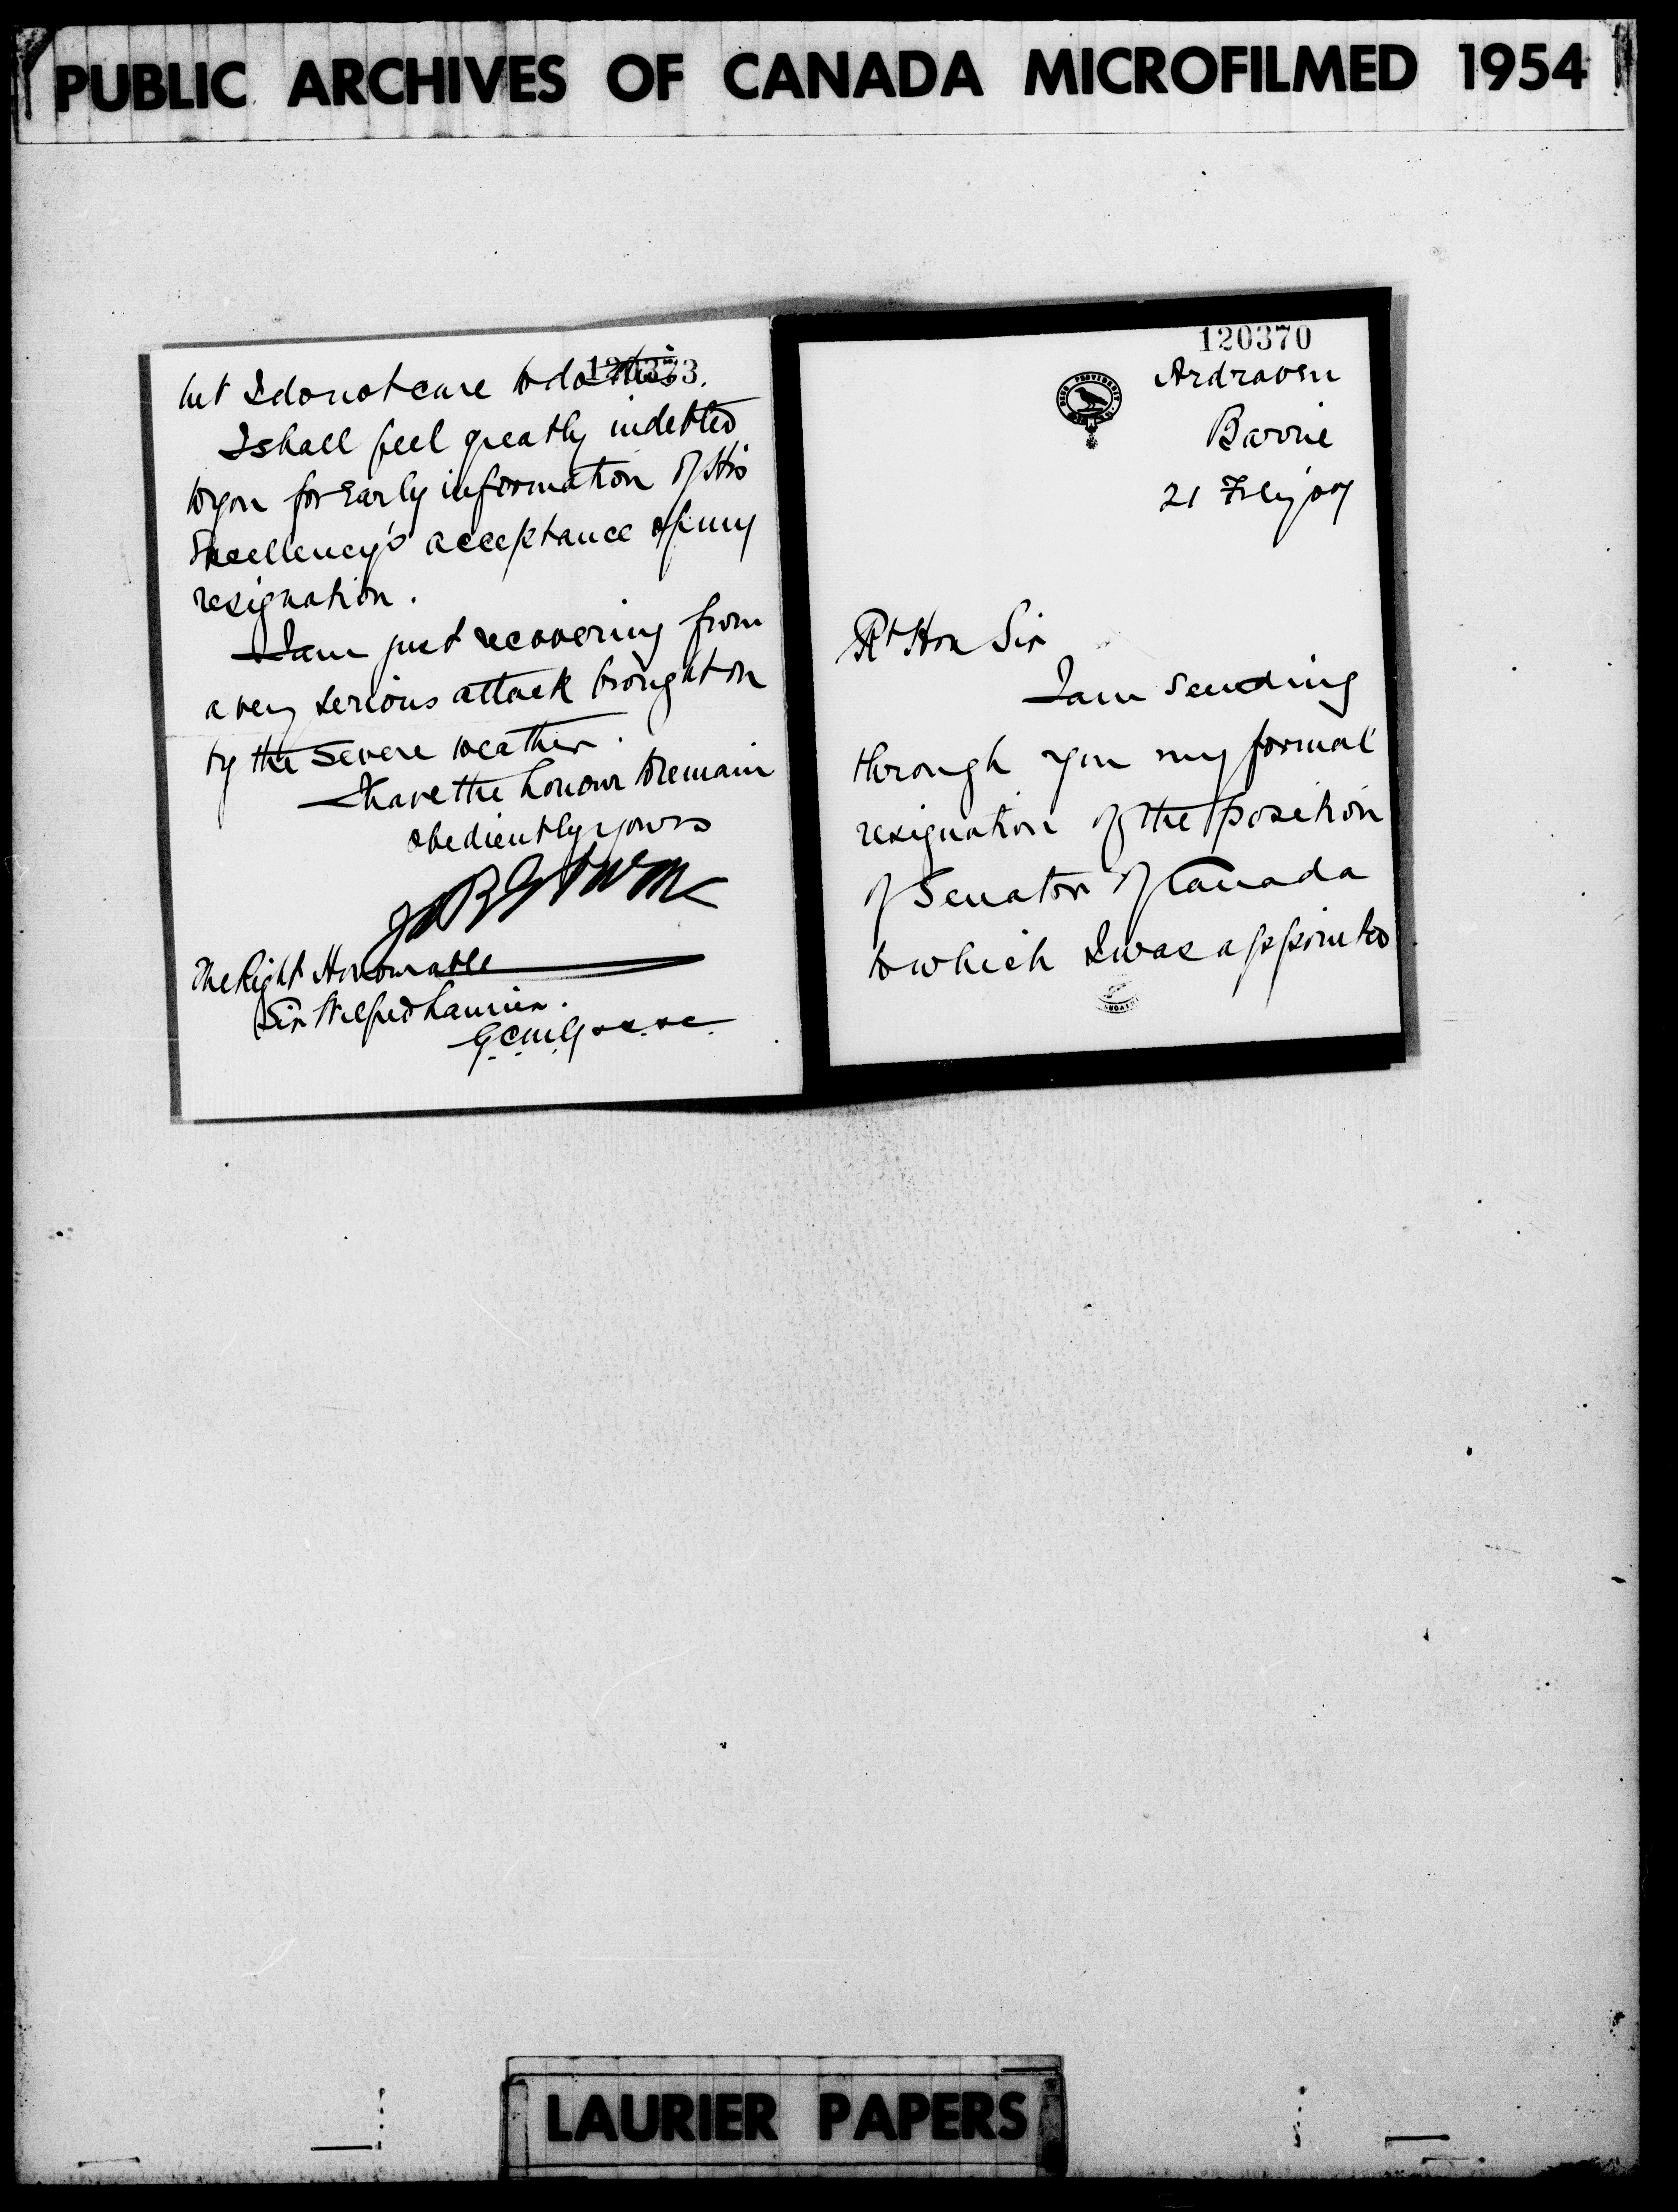 PUBLIC ARCHIVES OF CANADA MICROFILMED 1954
120373
but I do not care to do this.
I shall feel greatly indebted
to you for Early information of His
Excellency's acceptance of my
resignation.
I am just recovering from
a very serious attack brought on
by the severe weather.
I have the honour to remain
obediently yours
J R Gowan
The Right Honourable
Sir Wilfred Laurier.
G.C.M.G
120370
Ardraven
Barrie
21 Feby 07
Rt Hon Sir
I am sending
through you my formal
resignation of the position
of Senator of Canada
to which I was appointed
LAURIER PAPERS